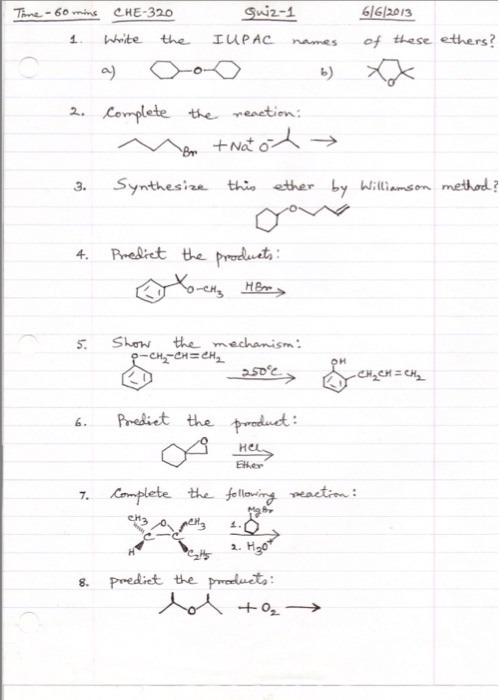 Time - 60 mins CHE-320 Quiz-1 6/6/2013
1. Write the IUPAC names of these ethers?
a) O b) O
2. Complete the reaction:
Br + Na⁺ O⁻ →
3. Synthesize this ether by Williamson method?
O
4. Predict the products:
O-CH₃ HBr
5. Show the mechanism:
O-CH₂-CH=CH₂ OH
250°C CH₂CH=CH₂
6. Predict the product:
O HCl
Ether
7. Complete the following reaction:
MgBr
CH₃ O CH₃ 1.
C C
H C₂H₅ 2. H₃O⁺
8. predict the products:
O + O₂ →